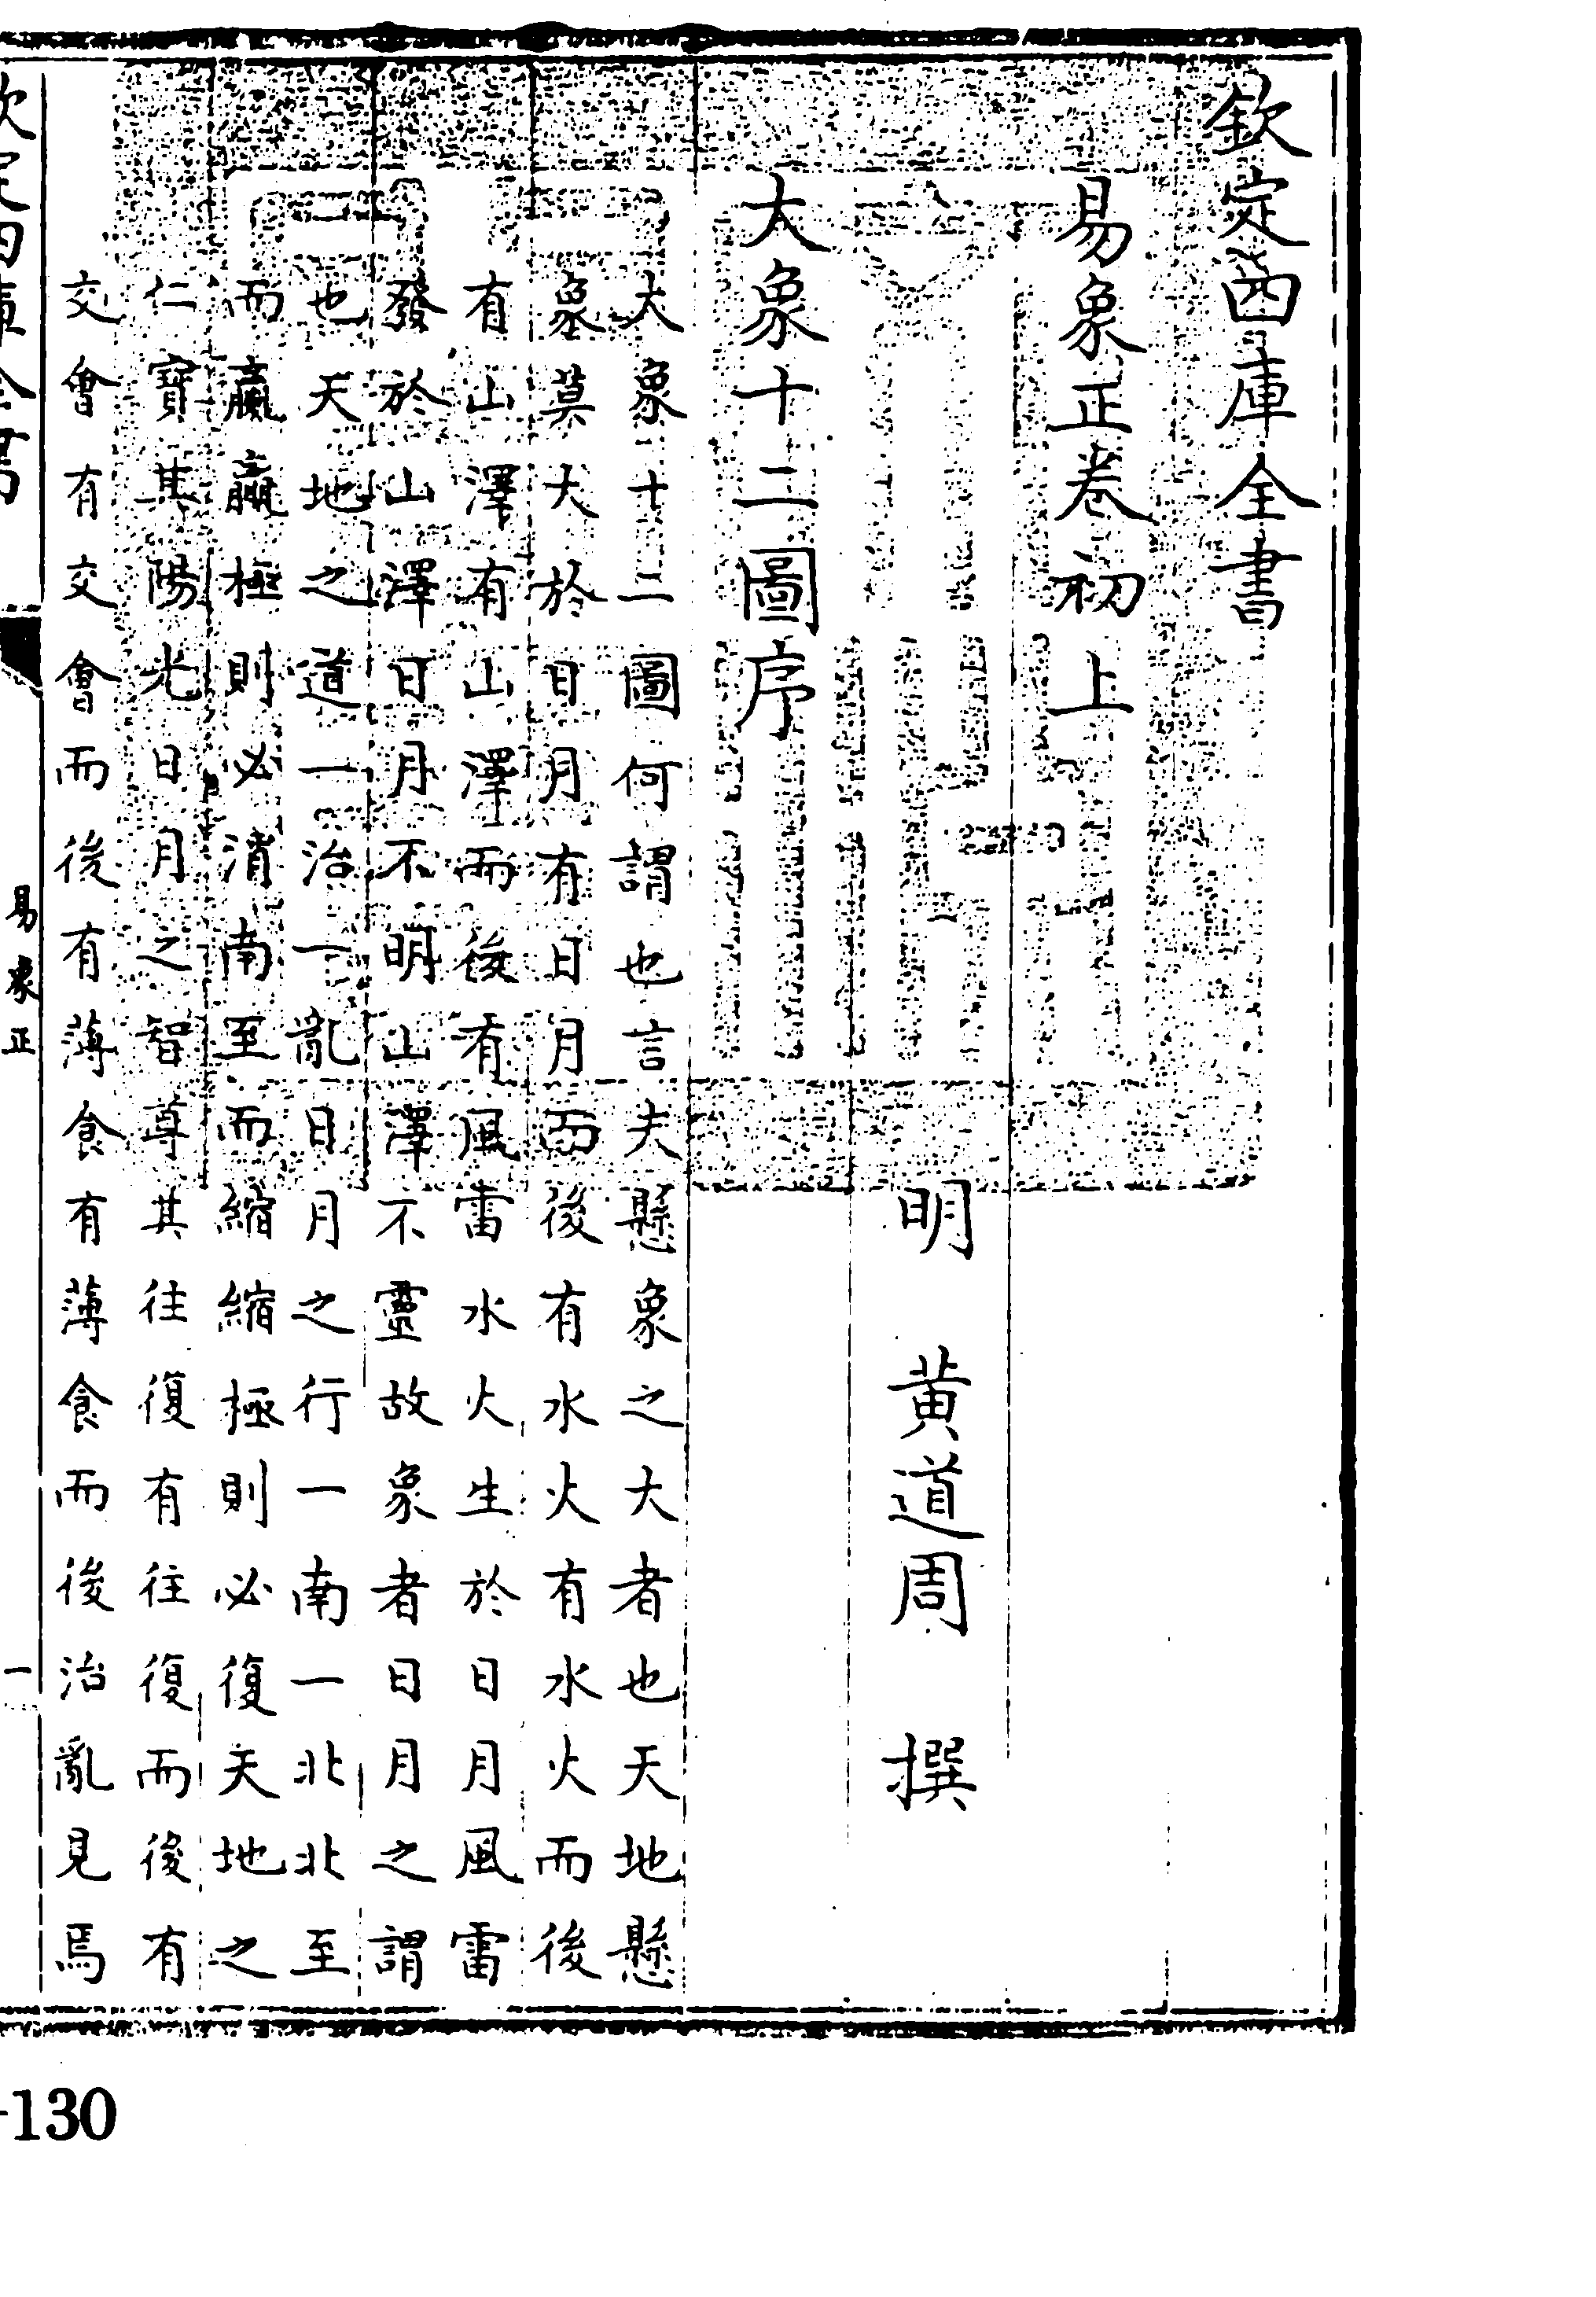 欽定四庫全書
易象正卷初上
明 黄道周 撰
大象十二圖序
大象十二圖何謂也言夫懸象之大者也天地懸
象莫大於日月有日月而後有水火有水火而後
有山澤有山澤而後有風雷水火生於日月風雷
發於山澤日月不明山澤不靈故象者日月之謂
也天地之道一治一亂日月之行一南一北北至
而贏贏極則必消南至而縮縮極則必復天地之
仁寶其陽光日月之智尊其往復有往復而後有
交會有交會而後有薄食有薄食而後治亂見焉
易象正
一
130